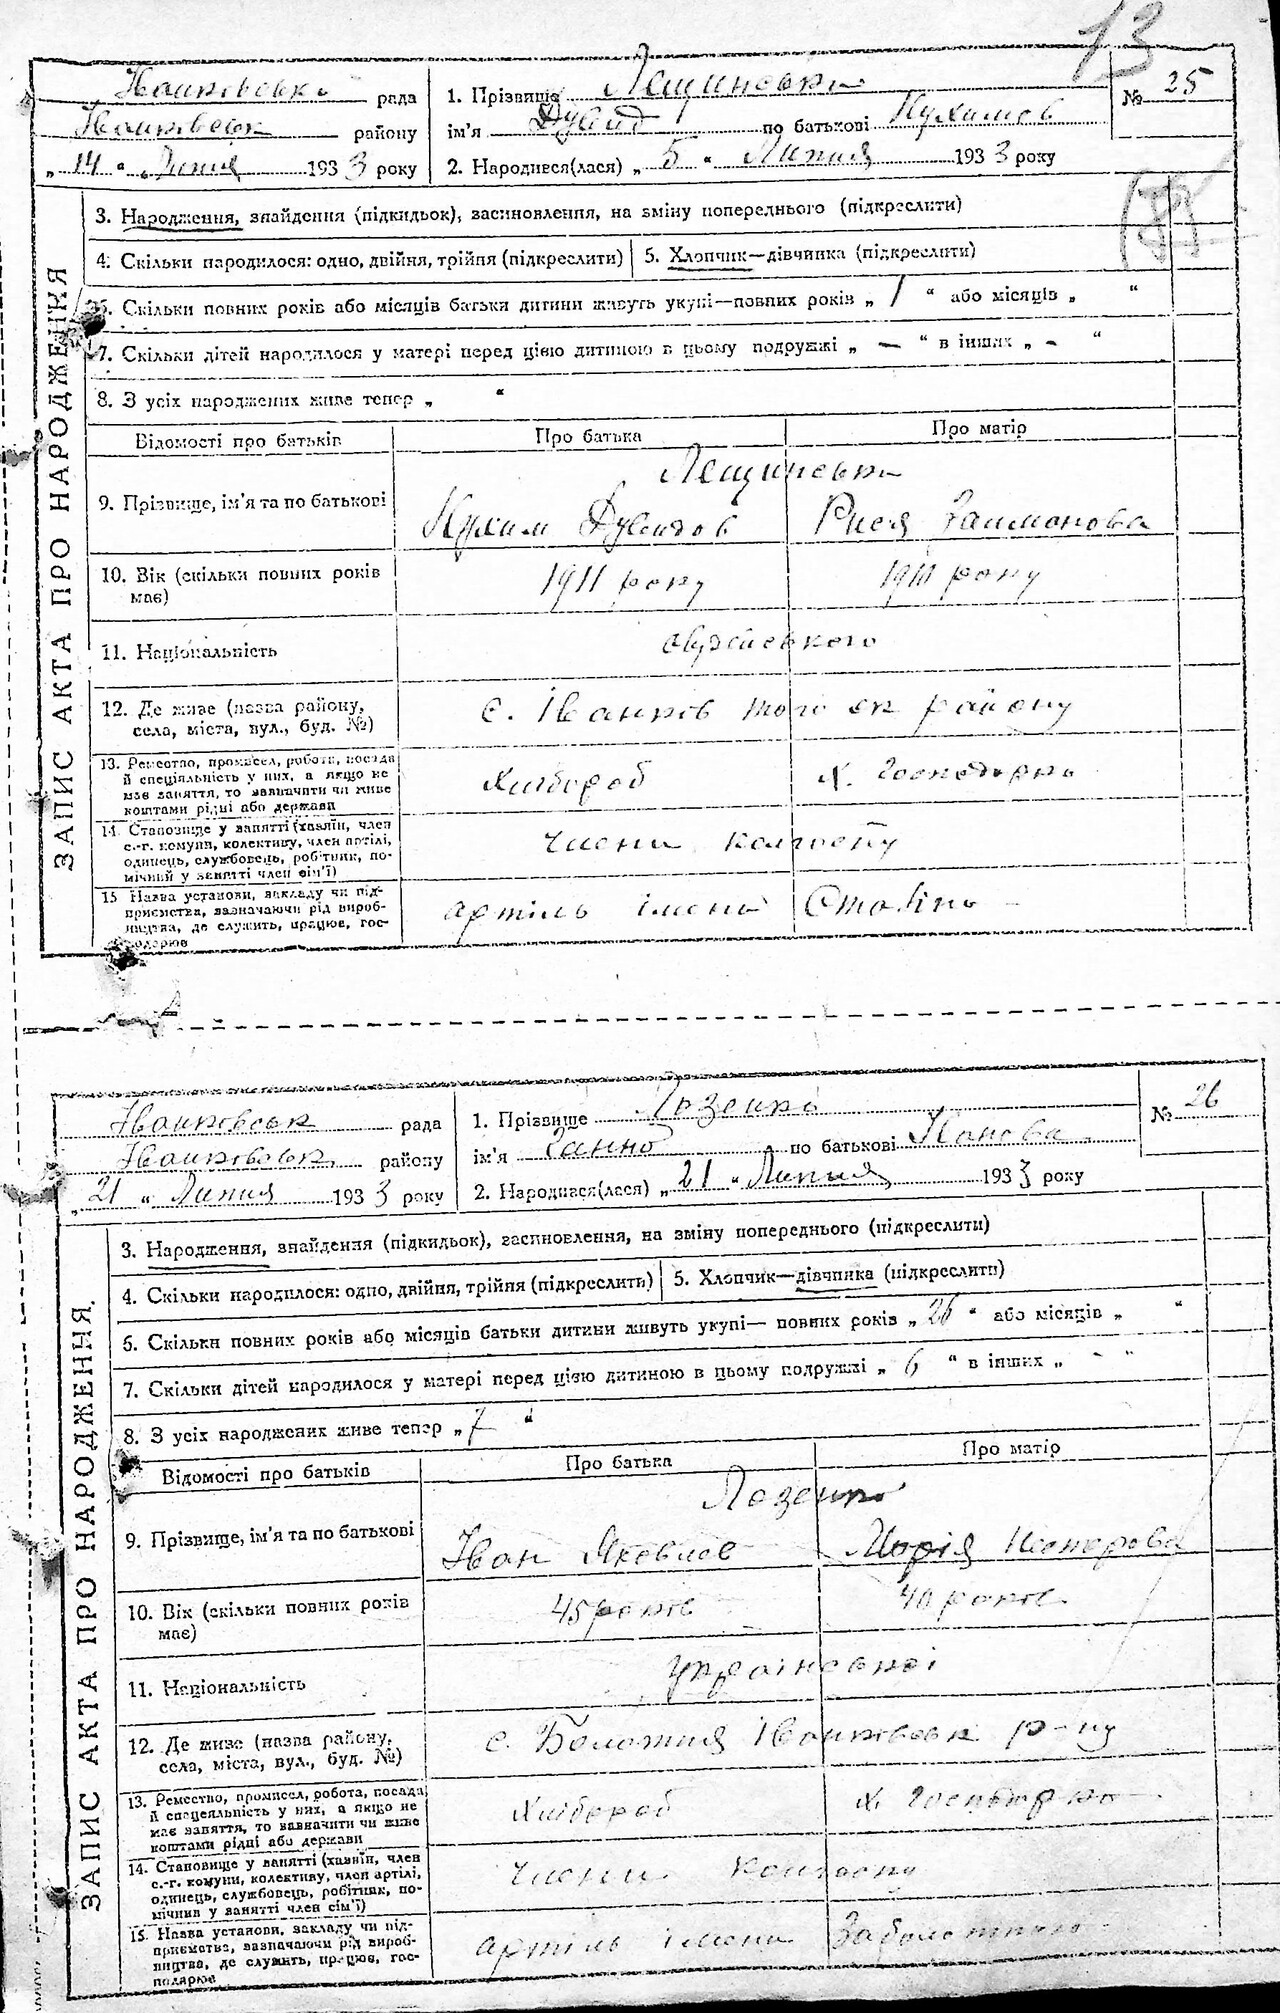 13
Іванківська рада
Іванківськ району
„ 14 “ „ Липня 1933 року
1. Прізвище Лещинськи
ім'я Дувид по батькові Нухимов
2. Народився(лася) „ 5 “ Липня 1933 року
№ 25
ЗАПИС АКТА ПРО НАРОДЖЕННЯ
3. Народження, знайдення (підкидьок), засиновлення, на зміну попереднього (підкреслити)
4. Скільки народилося: одно, двійня, трійня (підкреслити) 5. Хлопчик—дівчинка (підкреслити)
6. Скільки повних років або місяців батьки дитини живуть укупі—повних років „ 1 “ або місяців „ “
7. Скільки дітей народилося у матері перед цією дитиною в цьому подружжі „ — “ в інших „ - “
8. З усіх народжених живе тепер „ “
Відомості про батьків Про батька Про матір
9. Прізвище, ім'я та по батькові
Лещинськи
Нухим Дувидов Рися
10. Вік (скільки повних років
має)
1911 року року
11. Національність
12. Де живе (назва району,
села, міста, вул., буд. №)
с. Іванків того ск району
13. Ремество, промисел, робота, посада
й спеціяльність у них, а якщо не
має заняття, то зазначити чи живе
коштами рідні або держави
Хлібороб х. господарка
14. Становище у занятті (хазяїн, член
с.-г. комуни, колективу, член артілі,
одинець, службовець, робітник, по-
мічний у занятті член сім'ї)
члени колгоспу
15 Назва установи, закладу чи під-
приємства, зазначаючи рід вироб-
ництва, де служить, працює, гос-
подарює
артіль імени Сталіна
Іванківськ рада
Іванківськ району
„ 21 “ Липня 1933 року
1. Прізвище Лозенко
ім'я Ганна по батькові Іванова
2. Народився(лася) „ 21 “ Липня 1933 року
№ 26
ЗАПИС АКТА ПРО НАРОДЖЕННЯ.
3. Народження, знайдення (підкидьок), засиновлення, на зміну попереднього (підкреслити)
4. Скільки народилося: одно, двійня, трійня (підкреслить) 5. Хлопчик—дівчинка (підкреслити)
6. Скільки повних років або місяців батьки дитини живуть укупі— повних років „ 26 “ або місяців „ “
7. Скільки дітей народилося у матері перед цією дитиною в цьому подружжі „ 6 “ в інших „ - “
8. З усіх народжених живе тепер „ 7 “
Відомості про батьків Про батька Про матір
9. Прізвище, ім'я та по батькові
Лозенко
Іван Яковлев Марія
10. Вік (скільки повних років
має)
45 років 40 років
11. Національність
української
12. Де живе (назва району,
села, міста, вул., буд. №)
с. Болотня Іванківськ р-ну
13. Ремество, промисел, робота, посада
й спецеяльність у них, а якщо не
має заняття, то зазначити чи живе
коштами рідні або держави
Хлібороб х. господарка
14. Становище у занятті (хазяїн, член
с.-г. комуни, колективу, член артілі,
одинець, службовець, робітник, по-
мічник у занятті член сім'ї)
члени колгоспу
15. Назва установи, закладу чи під-
приємства, зазначаючи рід вироб-
ництва, де служить, працює, гос-
подарює
артіль імени